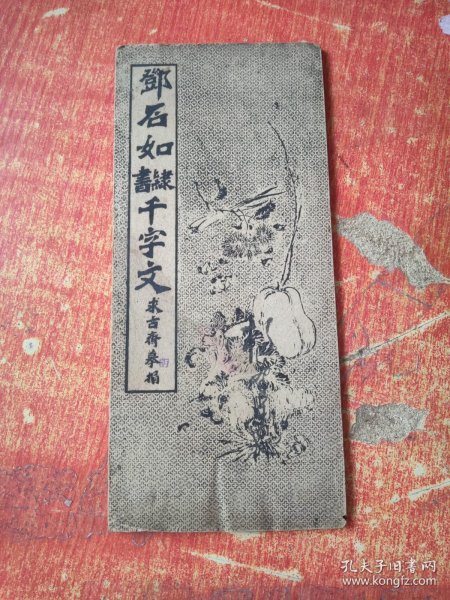 鄧石如
隸書
千字文
求古齋
孔夫子旧书网
www.kongfz.com